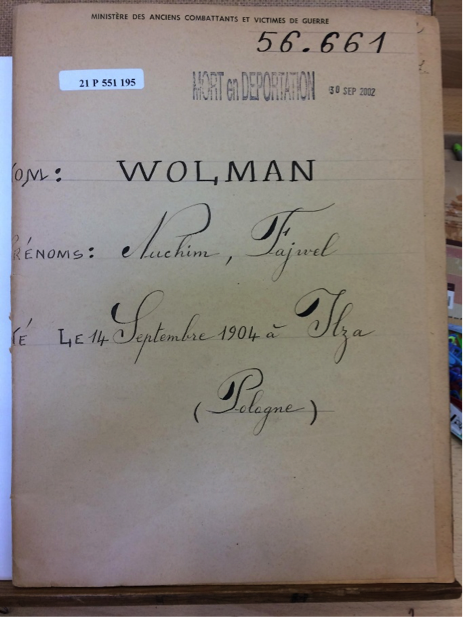 MINISTÈRE DES ANCIENS COMBATTANTS ET VICTIMES DE GUERRE
56.661
21 P 551 195
MORT en DEPORTATION
SEP 2002
OM: WOLMAN
RÉNOMS: Nuchim, Fajwel
É LE 14 Septembre 1904 à Ilza
(Pologne)